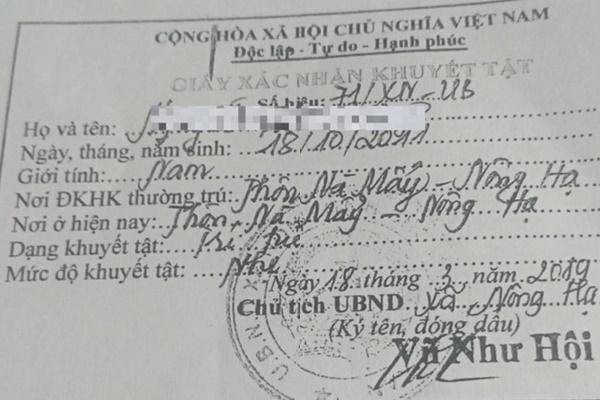 CỘNG HÒA XÃ HỘI CHỦ NGHĨA VIỆT NAM
Độc lập - Tự do - Hạnh phúc
GIẤY XÁC NHẬN KHUYẾT TẬT
Số hiệu: 71/XN-UB
Họ và tên:
Ngày, tháng, năm sinh: 18/10/2011
Giới tính: Nam
Nơi ĐKHK thường trú: Thôn Nà Mẩy - Nông Hạ
Nơi ở hiện nay: Thôn Nà Mẩy - Nông Hạ
Dạng khuyết tật: Trí tuệ
Mức độ khuyết tật: Nhẹ
Ngày 18 tháng 3 năm 2019
Chủ tịch UBND xã Nông Hạ
(Ký tên, đóng dấu)
Vũ Như Hội
U.B.N.D